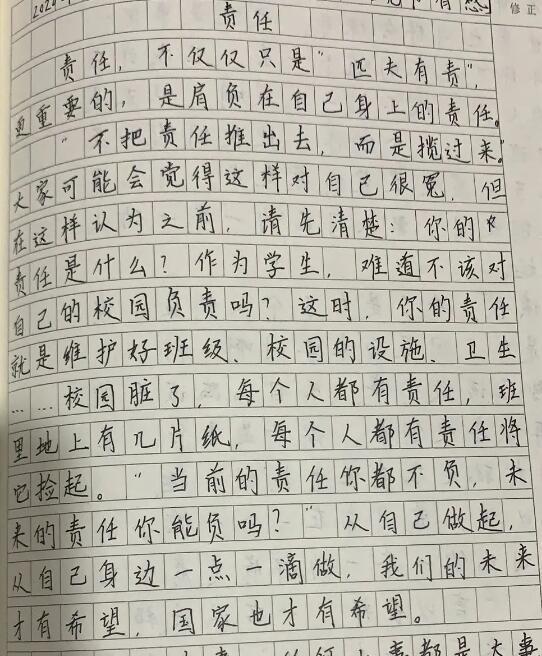 2020
修正
责任
责任，不仅仅只是“匹夫有责”，
更重要的，是肩负在自己身上的责任。
“不把责任推出去，而是揽过来。”
大家可能会觉得这样对自己很冤，但
在这样认为之前，请先清楚：你的
责任是什么？作为学生，难道不该对
自己的校园负责吗？这时，你的责任
就是维护好班级、校园的设施、卫生
……校园脏了，每个人都有责任，班
里地上有几片纸，每个人都有责任将
它捡起。“当前的责任你都不负，未
来的责任你能负吗？”从自己做起，
从自己身边一点一滴做，我们的未来
才有希望，国家也才有希望。
事都是大事